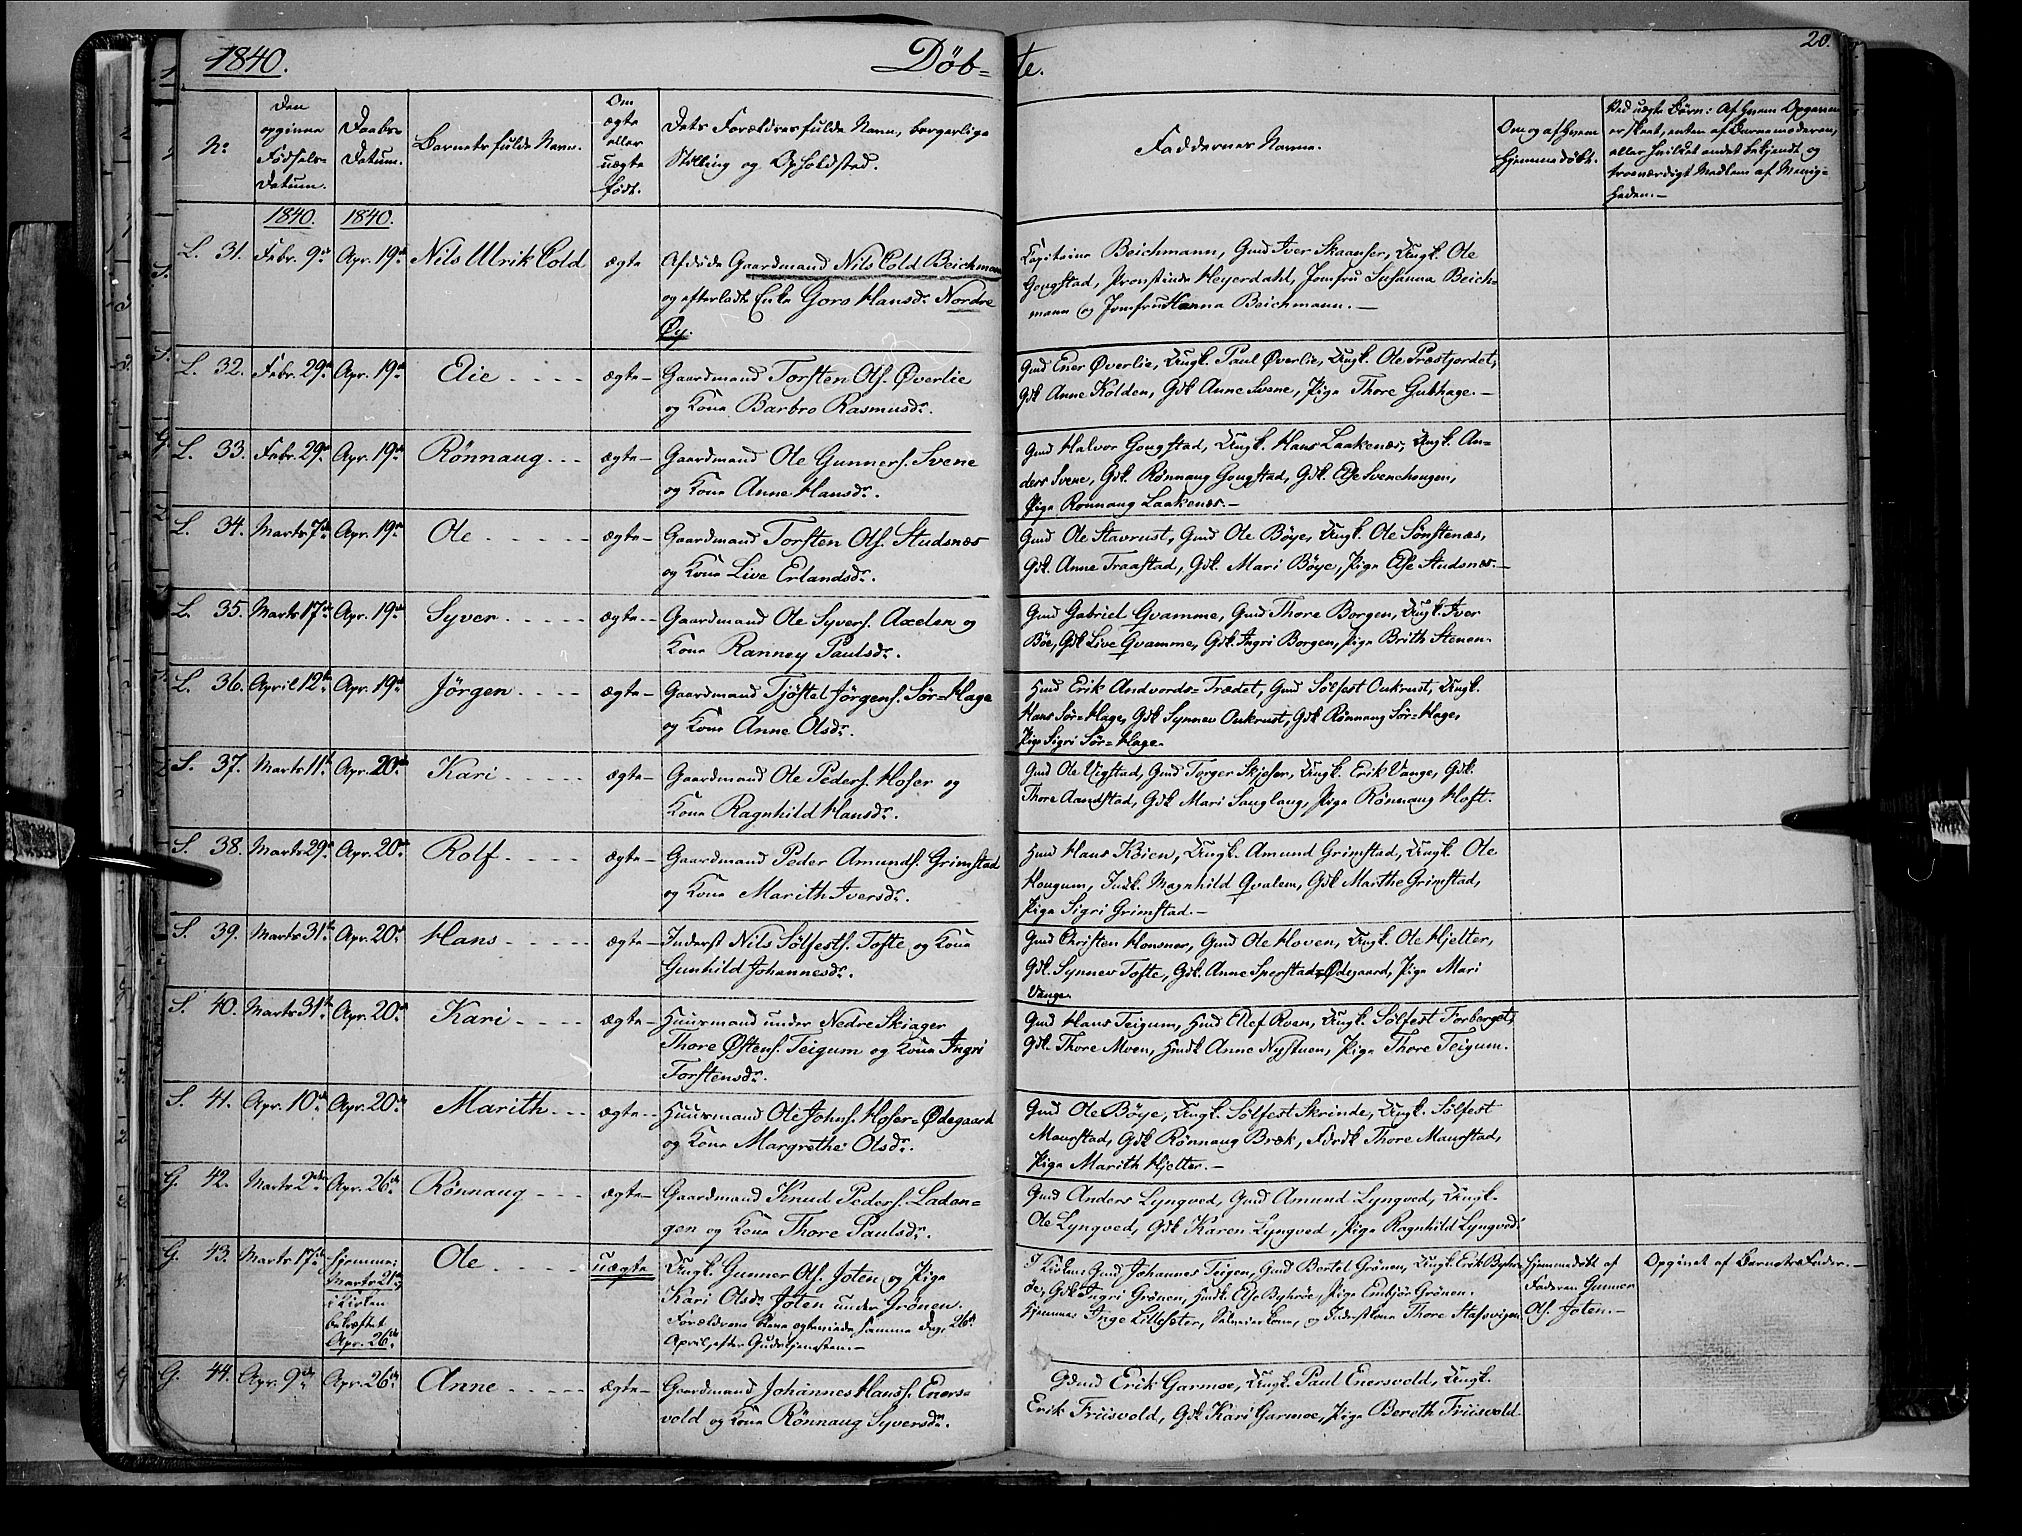 1840.
Døb=
te.
20.
No
Den
opgivne
Fødsels-
Datum.
Daabs-
Datum.
Barnets fulde Navn.
Om
ægte
eller
uægte
født.
Dets Forældres fulde Navn, borgerlige
Stilling og Opholdsted.
Faddernes Navne.
Om og af hvem
hjemmedøbt.
Ved uægte Børn: Af hvem Opgaven
er skeet, enten af Barnemoderen,
eller hvilket andet bekjendt og
troværdigt Medlem af Menig-
heden.—
1840. 1840.
L. 31. Febr. 9de Apr. 19de Nils Ulrik Cold ægte Afdøde Gaardmand Nils Cold Beichmann
og efterladte Enke Goro Hansdr. Nordre
Øy.
Capitaine Beichmann, Gmd Iver Skaanser, Ungk. Ole
Gougstad, Provstinde Heyerdahl, Jomfru Susanna Beich-
mann og Jomfru Hanna Beichmann.—
L. 32. Febr. 29de Apr. 19de Elie ægte Gaardmand Torsten Ols. Øverlie
og Kone Barbro Rasmusdr.
Gmd Ener Øverlie, Ungk. Paul Øverlie, Ungk. Ole Præstjordet,
Gdk Anne Kolden, Gdk Anne Svene, Pige Thore Gubhage.—
L. 33. Febr. 29de Apr. 19de Rönnaug ægte Gaardmand Ole Gunners. Svene
og Kone Anne Hansdr.
Gmd Halvor Gougstad, Ungk. Hans Laakenæs, Ungk. An-
ders Svene, Gdk. Rønnaug Gougstad, Gdk. Else Svenehougen,
Pige Rønnaug Laakenæs.—
L. 34. Marts 7de Apr. 19de Ole ægte Gaardmand Torsten Ols. Studsnæs
og Kone Live Erlandsdr.
Gmd Ole Stavrust, Gmd Ole Böye, Ungk. Ole Sønstenæs,
Gdk. Anne Traastad, Gdk. Mari Böye, Pige Else Studsnæs.—
L. 35. Marts 17de Apr. 19de Syver ægte Gaardmand Ole Syvers. Axelen og
Kone Ranney Paulsdr.
Gmd Gabriel Qvamme, Gmd Thore Borgen, Ungk. Iver
Böe, Gdk Live Qvamme, Gdk. Ingri Borgen, Pige Brith Stenen.
L. 36. April 12te Apr. 19de Jörgen ægte Gaardmand Tjøstel Jörgens. Sør=Hage
og Kone Anne Olsdr.
Hmd Erik Andvords=Trædet, Gmd Sølfest Oukrust, Ungk.
Hans Sør=Hage, Gdk Synnev Oukrust, Gdk Rønnaug Sør=Hage,
Pige Sigri Sør=Hage.
S. 37. Marts 11te Apr. 20de Kari ægte Gaardmand Ole Peders. Hofer og
Kone Ragnhild Hansdr.
Gmd Ole Vigstad, Gmd Torger Skjeser, Ungk. Erik Vange, Gdk.
Thore Aandstad, Gdk Mari Sanglang, Pige Rønnaug Hoft.
S. 38. Marts 29de Apr. 20de Rolf ægte Gaardmand Peder Amunds. Grimstad
og Kone Marith Iversdr.
Hmd Hans Kôien, Ungk. Amund Grimstad, Ungk. Ole
Hougum, Indk. Magnhild Qvalem, Gdk Marthe Grimstad,
Pige Sigri Grimstad.—
S. 39. Marts 31te Apr. 20de Hans ægte Inderst Nils Sølfests. Tofte og Kone
Gunhild Johannesdr.
Gmd Christen Housner, Gmd Ole Hoven, Ungk. Ole Hjelter,
Gdk. Synnev Tofte, Gdk. Anne Sperstad=Ødegaard, Pige Mari
Vange.
S. 40. Marts 31te Apr. 20de Kari ægte Huusmand under Nedre Skiager
Thore Østens. Teigum og Kone Ingri
Torstensdr.
Gmd Hans Teigum, Hmd Elef Roen, Ungk. Sølfest Forberget,
Gdk. Thore Moen, Hmdk Anne Nystuen, Pige Thore Teigum.
S. 41. Apr. 10de Apr. 20de Marith ægte Huusmand Ole Johns. Hofer=Ødegaard
og Kone Margrethe Olsdr.
Gmd Ole Böye, Ungk. Sølfest Skrinde, Ungk. Sølfest
Maurstad, Gdk Rønnaug Bræk, Thore Maurstad,
Pige Marith Hjelter.—
G. 42. Marts 2den Apr. 26de Rönnaug ægte Gaardmand Knud Peders. Ladan=
gen og Kone Thore Paulsdr.
Gmd Anders Lyngved, Gmd Amund Lyngved, Ungk.
Ole Lyngved, Gdk Karen Lyngved, Pige Ragnhild Lyngved.
G. 43. Marts 17de Hjemme:
Marts 21de
i Kirken
bekræftet
Apr. 26de
Ole uægte Ungk. Gunner Ols. Joten og Pige
Kari Olsdr. Joten under Grönen.
Forældrene bleve ægteviede samme Dag, 26de
April, efter Gudstjenesten.—
I Kirken Gmd Johannes Teigen, Gmd Bertel Grönen, Ungk. Erik Byhrø-
øe, Gdk Ingri Grönen, Hmdk. Else Byhrøe, Pige Embjör Grönen.
Hjemme Inge Lillesæter, og Inderstkone Thore Stafsvigen
Hjemmedöbt af
Faderen Gunner
Ols. Joten.—
Opgivet af Barnets Fader.—
G. 44. Apr. 9de Apr. 26de Anne ægte Gaardmand Johannes Hans. Eners-
vold og Kone Rønnaug Syversdr.
Gmd Erik Garmoe, Ungk. Paul Enersvold, Ungk.
Erik Friisvold, Gdk. Kari Garmoe, Pige Bereth Friisvold